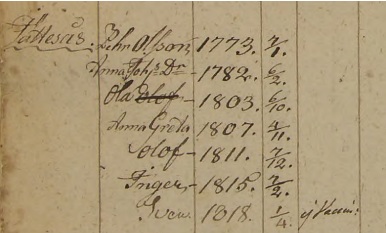 Pehr Olsson, 1773. 7/1.
Anna Joh:s Dr - 1782. 6/2.
Ola Olof - 1803. 6/10.
Anna Greta 1807. 4/11.
Olof - 1811. 7/12.
Inger - 1815. 7/2.
Sven 1818. 1/4. ej Vaccin: